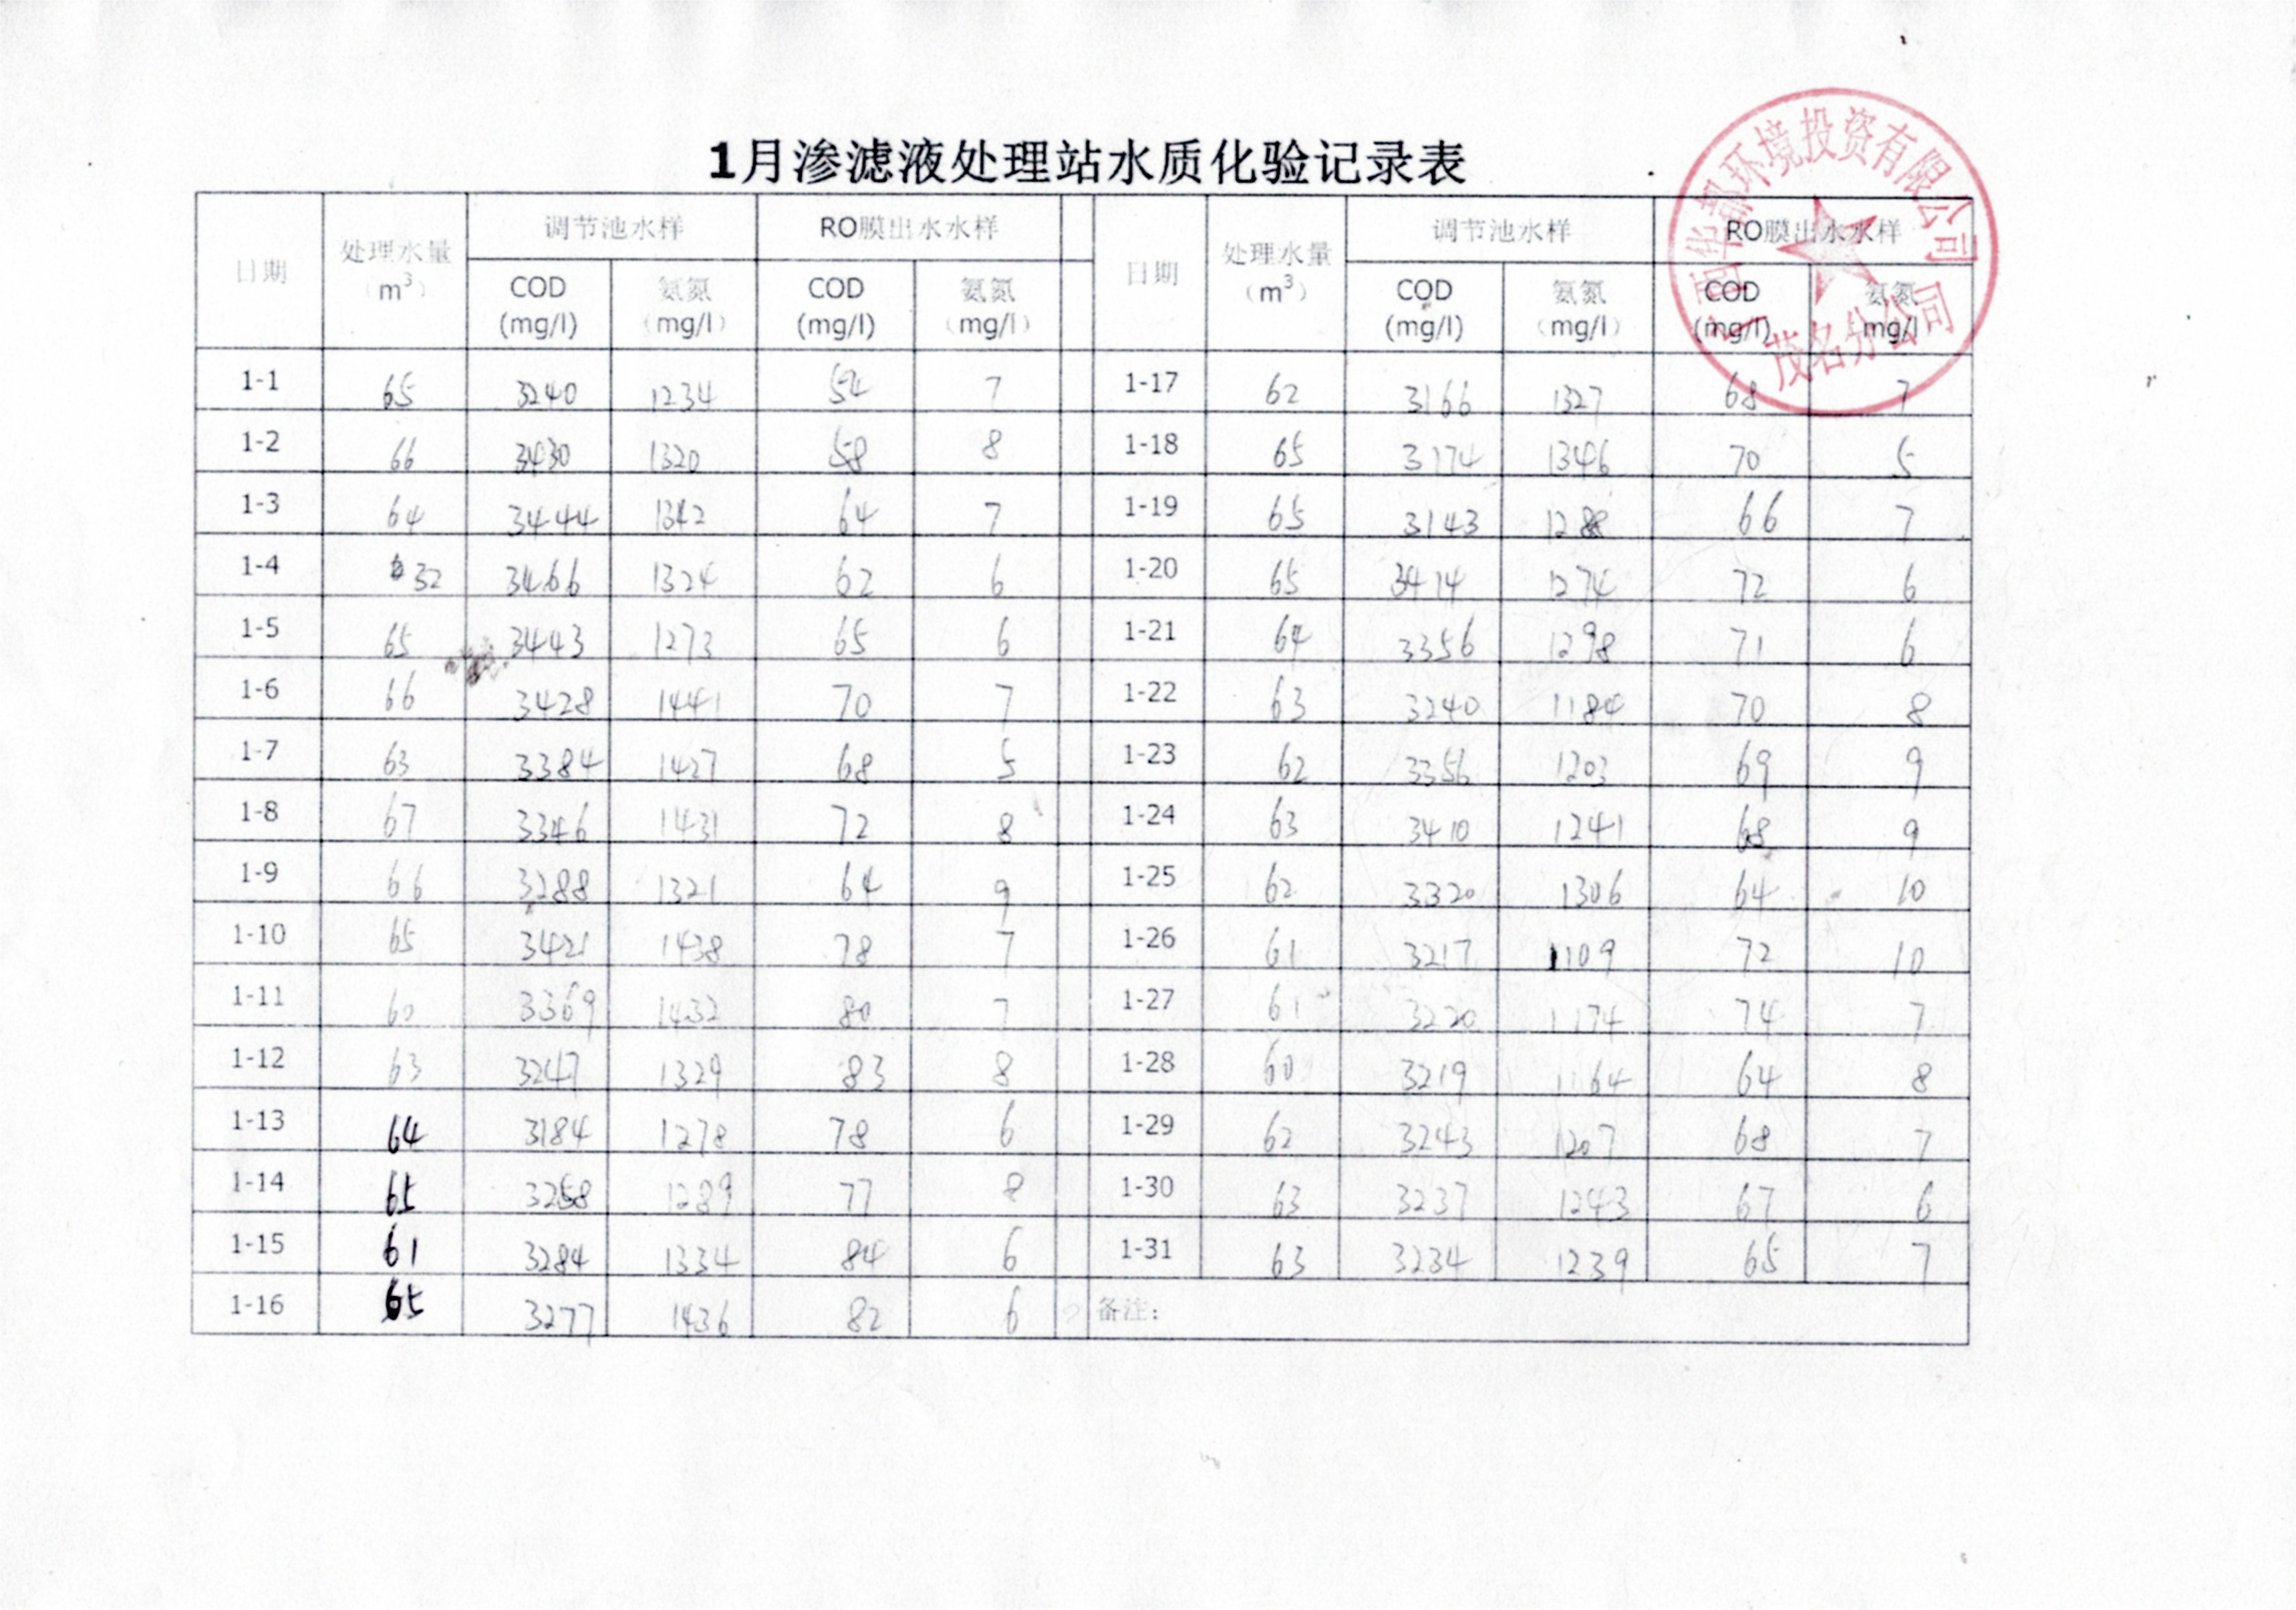 1月渗滤液处理站水质化验记录表
环境投资有限公司
茂名分公司
日期 处理水量（m³） 调节池水样 RO膜出水水样 日期 处理水量（m³） 调节池水样 RO膜出水水样
COD (mg/l) 氨氮（mg/l） COD (mg/l) 氨氮（mg/l） COD (mg/l) 氨氮（mg/l） COD (mg/l) 氨氮 mg/l
1-1 65 3240 1234 54 7 1-17 62 3166 1327 68 7
1-2 66 3430 1320 58 8 1-18 65 3174 1346 70 5
1-3 64 3444 1342 64 7 1-19 65 3143 1288 66 7
1-4 32 3466 1324 62 6 1-20 65 3414 1274 72 6
1-5 65 3443 1273 65 6 1-21 64 3356 1298 71 6
1-6 66 3428 1441 70 7 1-22 63 3240 1184 70 8
1-7 63 3384 1427 68 5 1-23 62 3356 1203 69 9
1-8 67 3346 1431 72 8 1-24 63 3410 1241 68 9
1-9 66 3288 1321 64 9 1-25 62 3320 1306 64 10
1-10 65 3421 1438 78 7 1-26 61 3217 1109 72 10
1-11 60 3369 1432 80 7 1-27 61 3220 1174 74 7
1-12 63 3247 1329 83 8 1-28 60 3219 1164 64 8
1-13 64 3184 1278 78 6 1-29 62 3243 1207 68 7
1-14 65 3258 1289 77 8 1-30 63 3237 1243 67 6
1-15 61 3284 1334 84 6 1-31 63 3234 1239 65 7
1-16 65 3277 1436 82 6 备注：